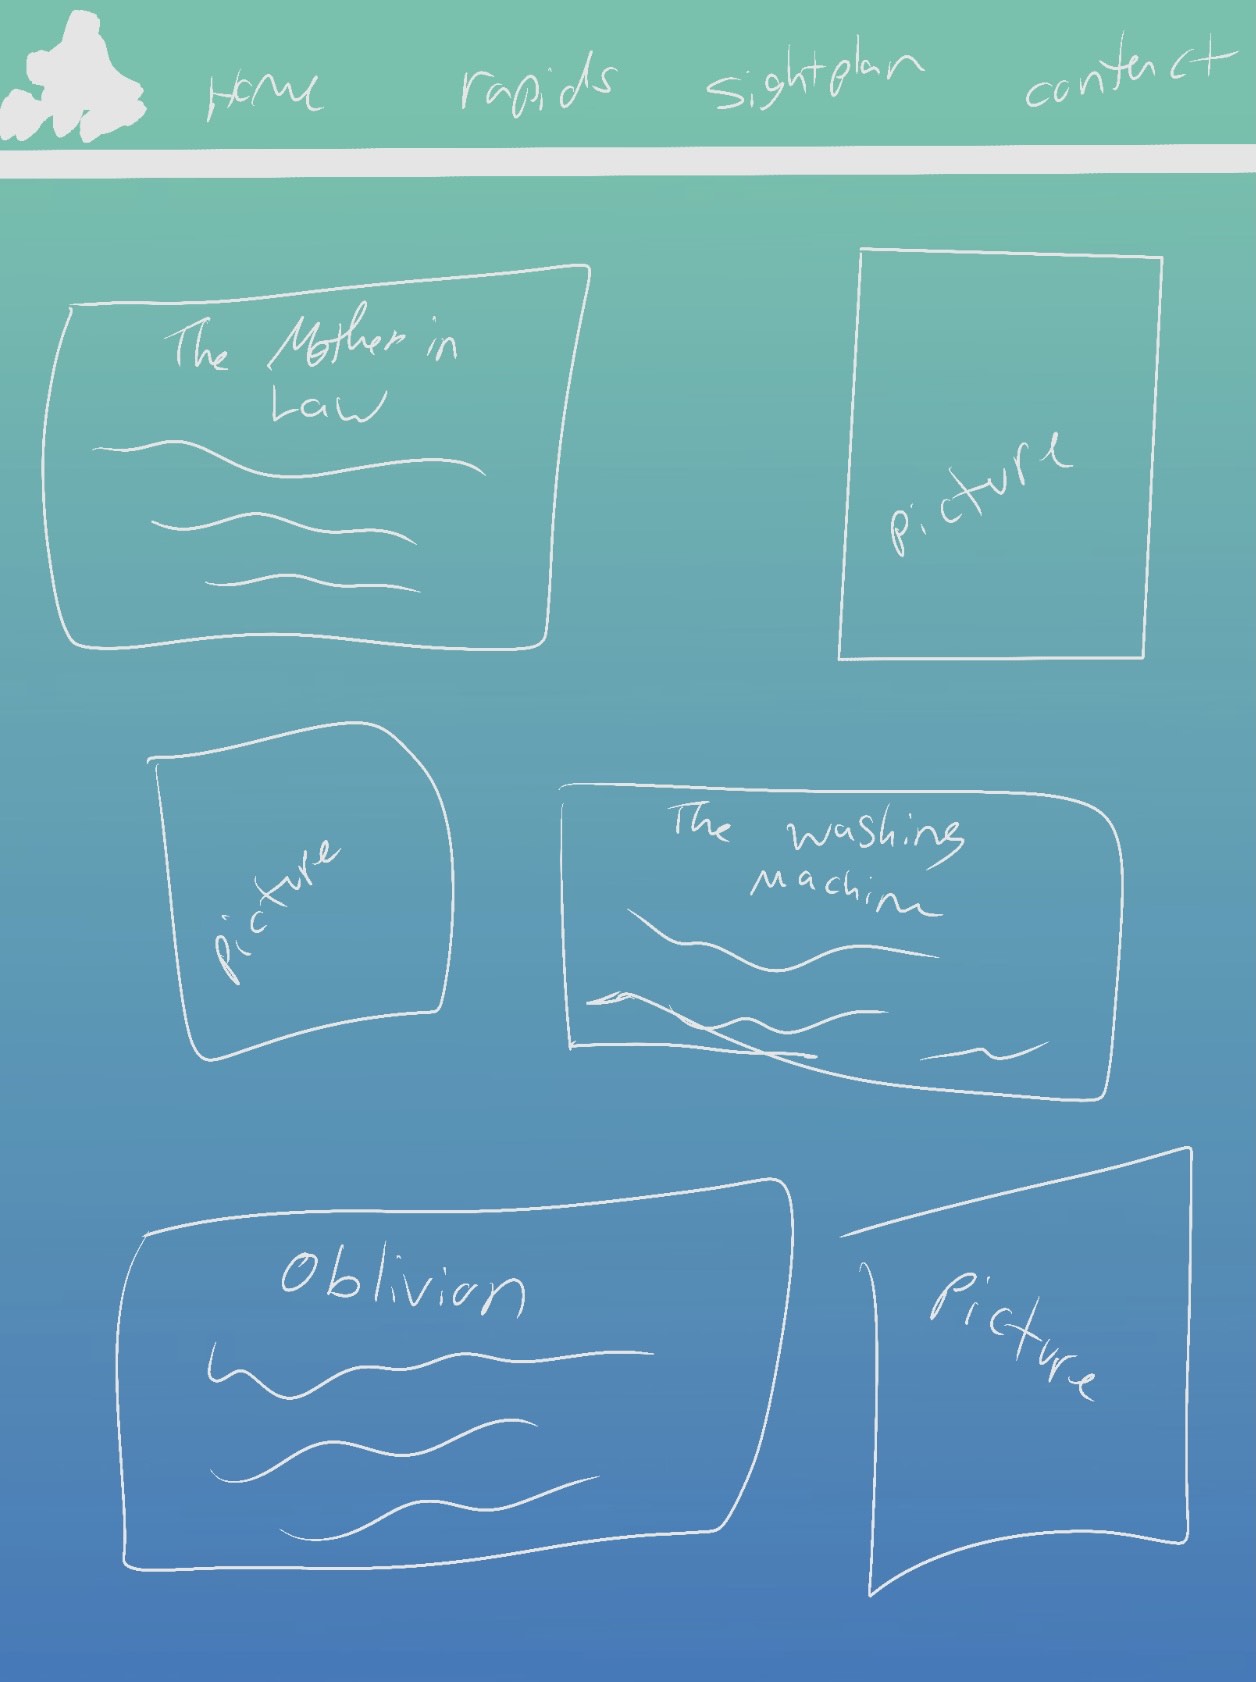 Home rapids sightplan contenct
The Mother in
Law
picture
picture
The washing
Machine
Oblivion
Picture